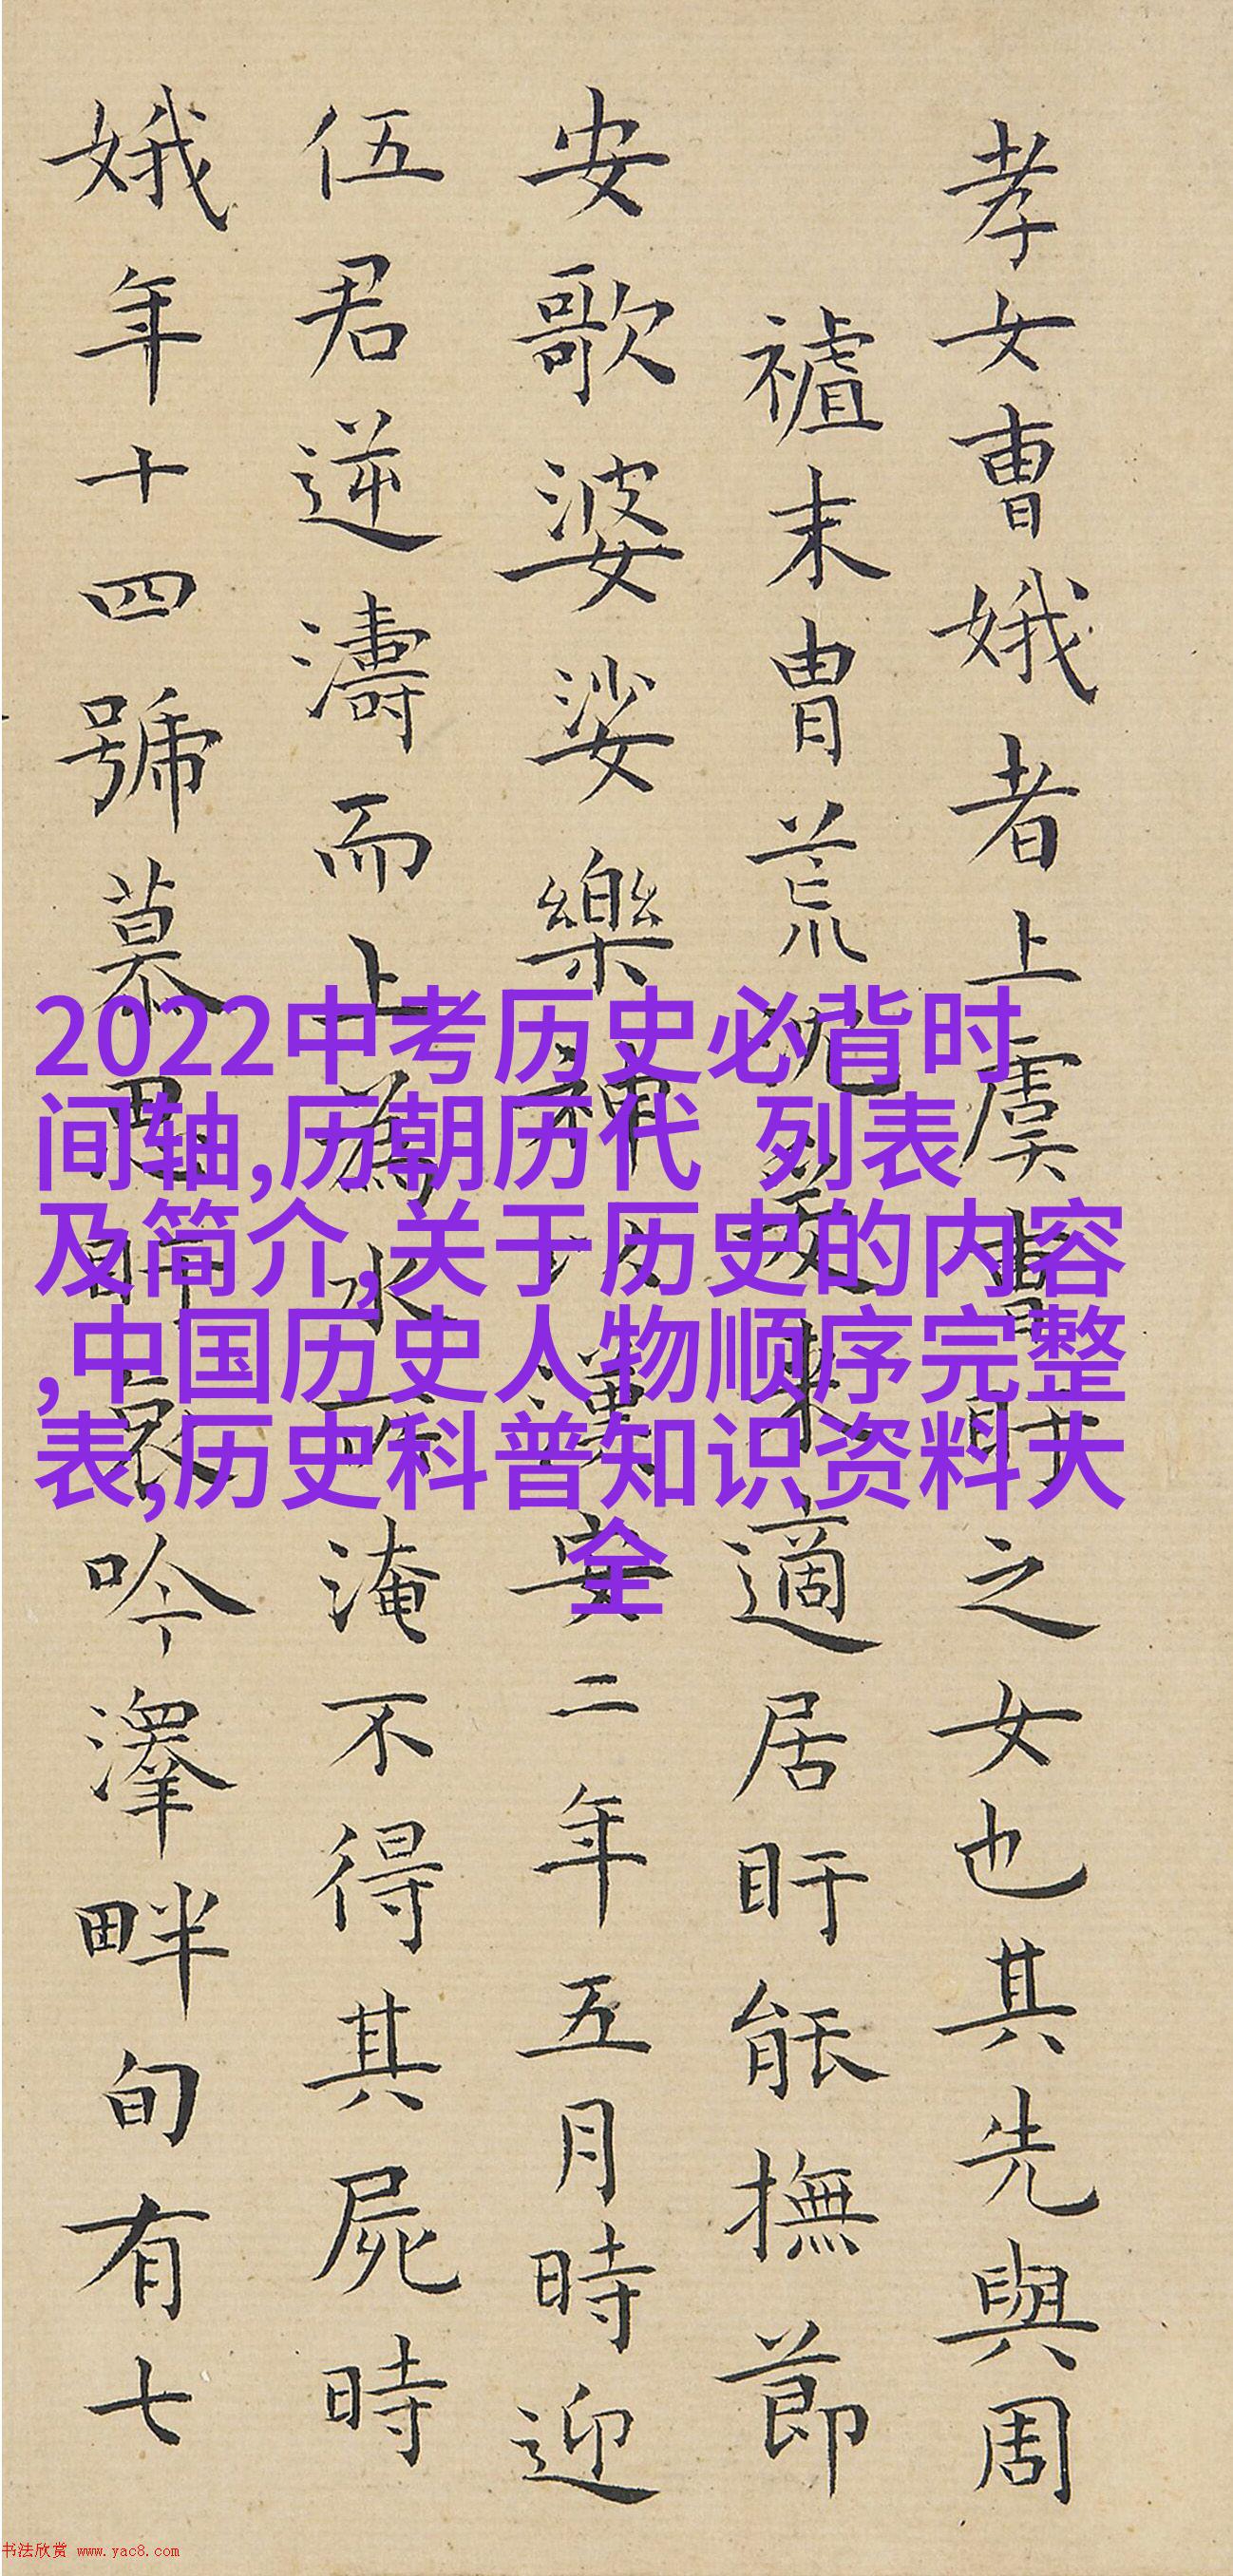 孝女曹娥者上虞曹盱之女也其先與周
禮末胄荒沈爰来適居盱能撫節
安歌婆娑樂神以漢安二年五月時迎
伍君逆濤而上為水所淹不得其屍時
娥年十四號慕思盱哀吟澤畔旬有七
2022中考历史必背时
间轴,历朝历代 列表
及简介,关于历史的内容
,中国历史人物顺序完整
表,历史科普知识资料大
全
书法欣赏 www.yac8.com